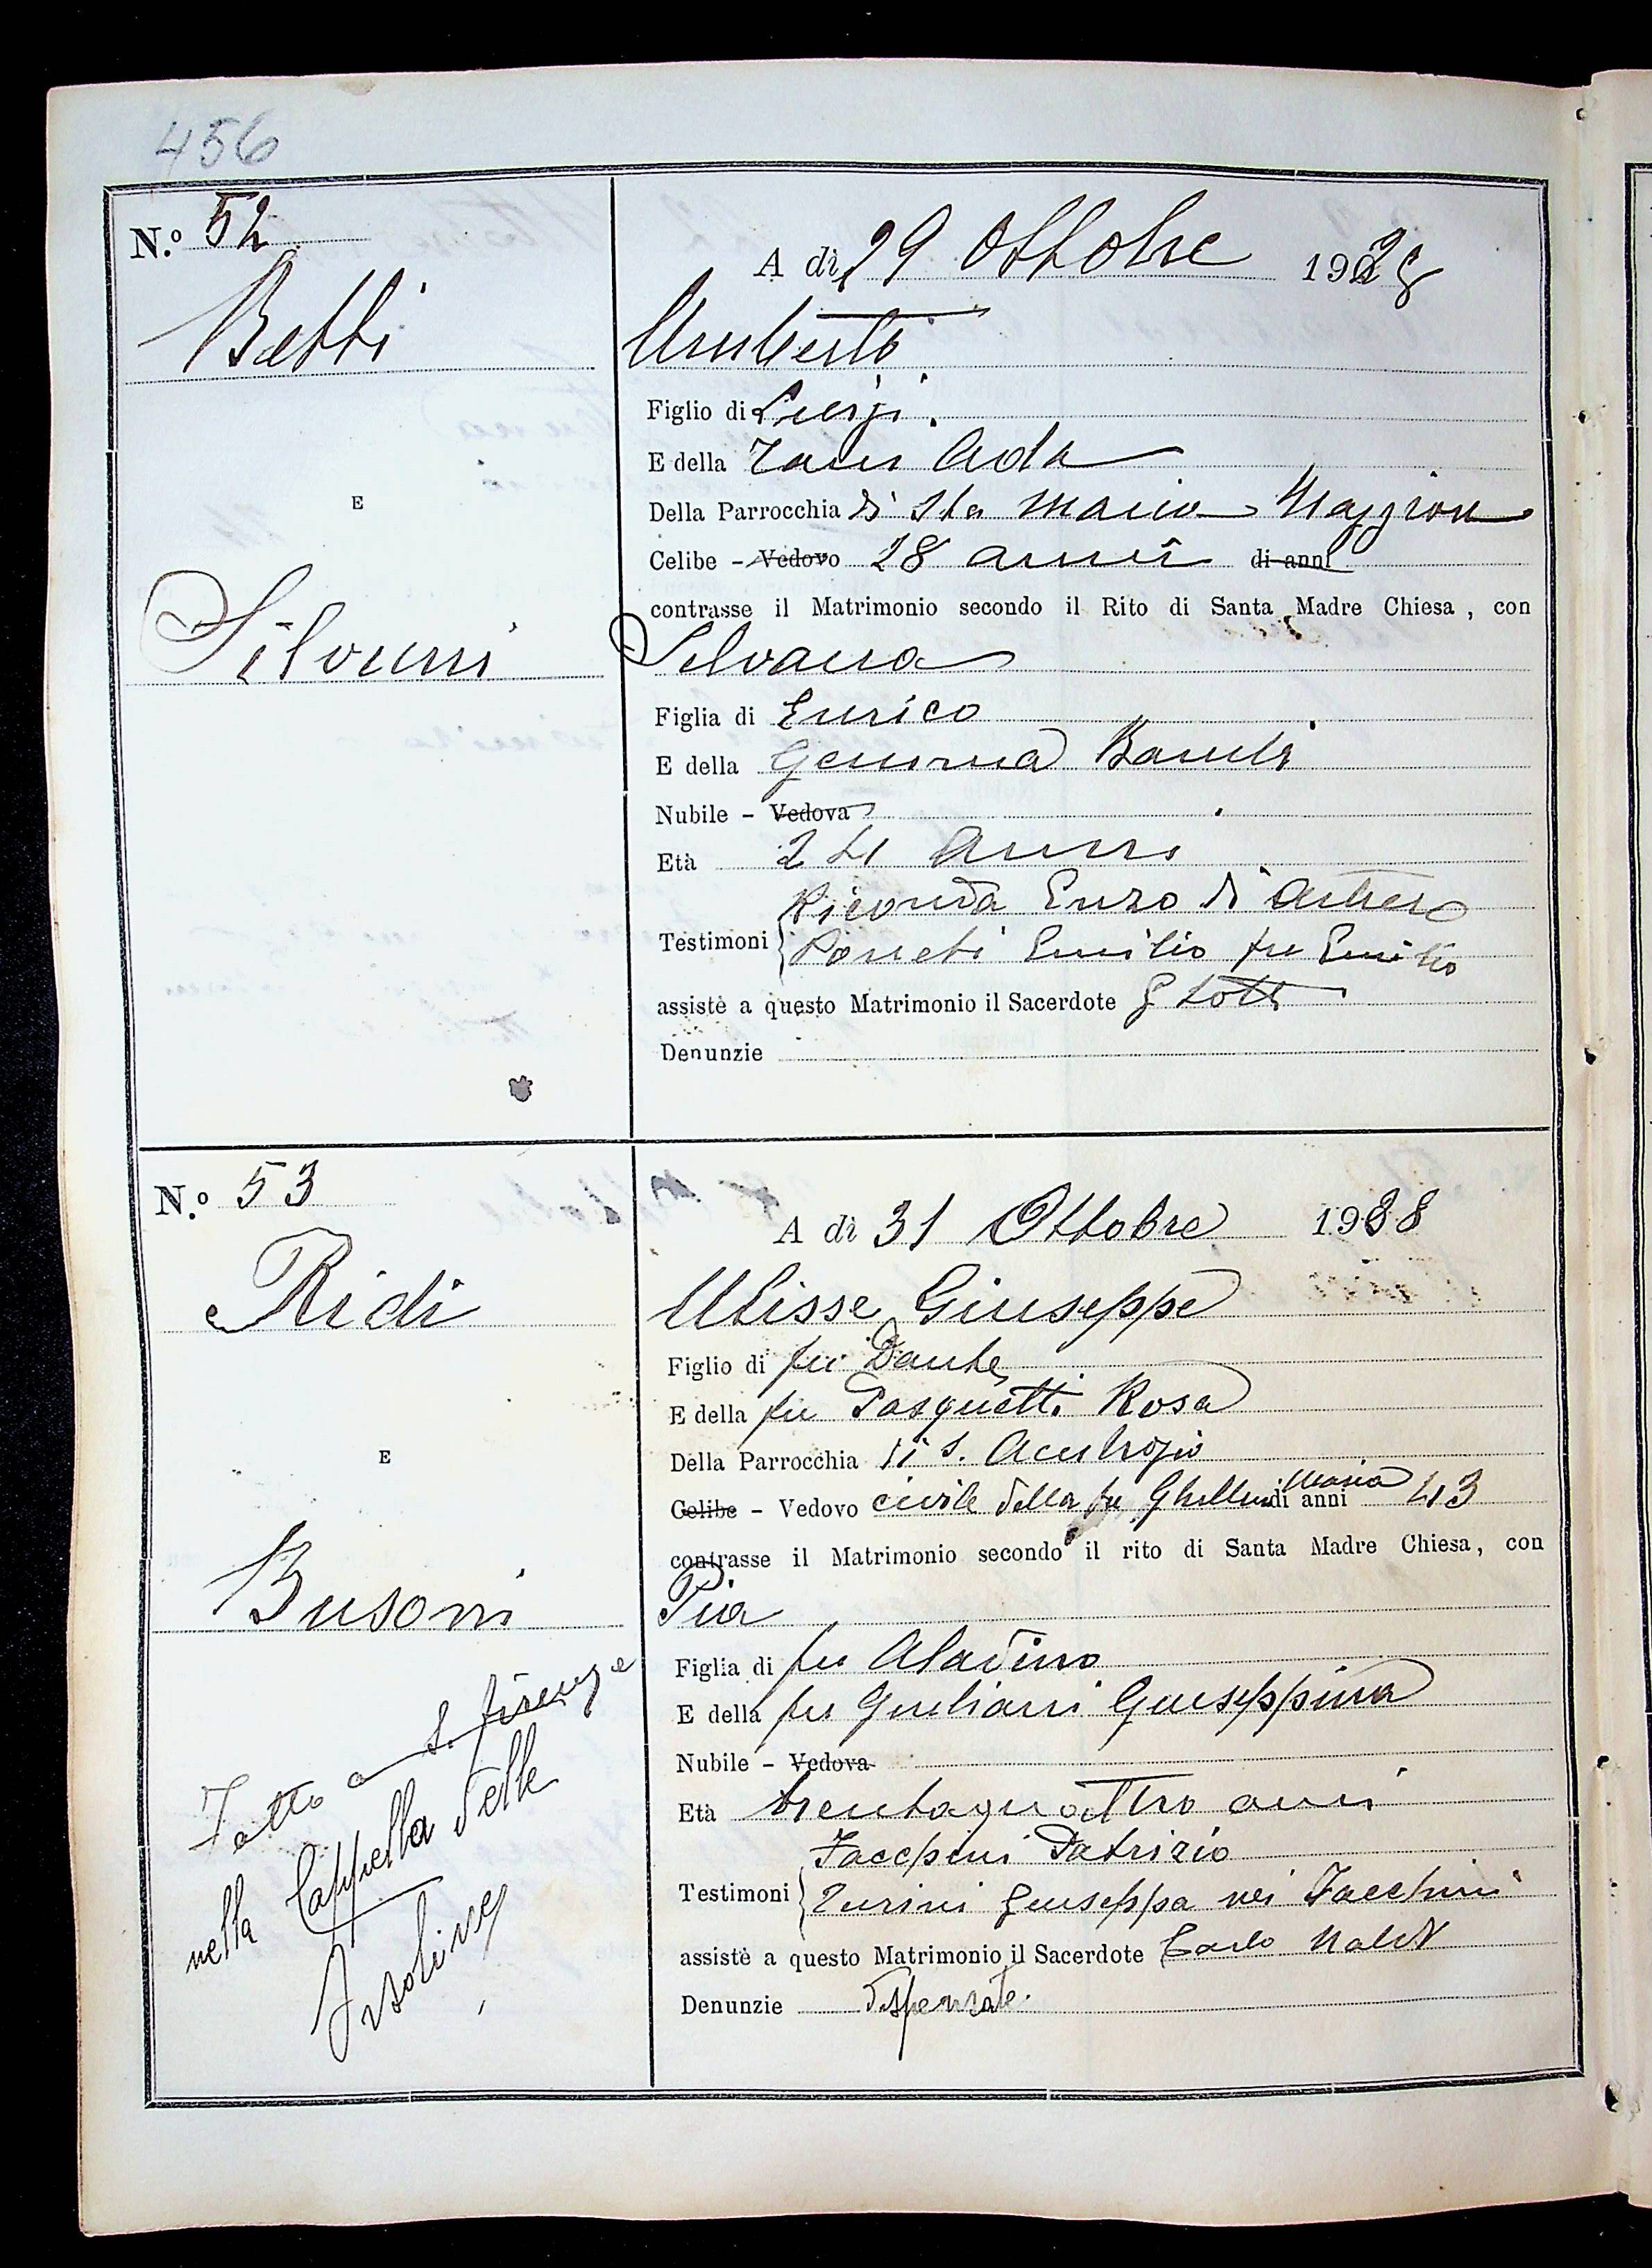 456
N.º 52
A dì 29 Ottobre 1928
Betti
Umberto
Figlio di Luigi.
E della Tani Ada
Della Parrocchia di Sta Maria Maggiore
E
Celibe - Vedovo 28 anni di anni
contrasse il Matrimonio secondo il Rito di Santa Madre Chiesa, con
Silvani
Silvana
Figlia di Enrico
E della Gemma
Nubile - Vedova
Età 24 Anni
Enzo di Arturo
Testimoni Emilio fu Emilio
assistè a questo Matrimonio il Sacerdote G Lotti
Denunzie
N.º 53
A dì 31 Ottobre 1938
Ridi
Ulisse Giuseppe
Figlio di fu Dante
E della fu Pasquetti Rosa
Della Parrocchia di S. Ambrogio
E
Celibe - Vedovo civile della fu Maria di anni 43
contrasse il Matrimonio secondo il rito di Santa Madre Chiesa, con
Busoni
Pia
Figlia di fu Aladino
E della fu Giuliani Giuseppina
Nubile - Vedova
Età trentaquattro anni
Facchini Patrizio
Testimoni Turini Giuseppa nei Facchini
assistè a questo Matrimonio il Sacerdote Carlo
Denunzie dispensate.
Fatto a S. Firenze
nella Cappella delle